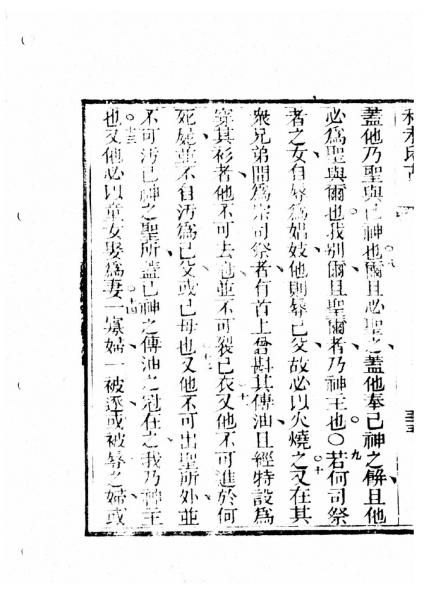 蓋他乃聖與己神也爾且必聖之蓋他奉己神之餅且他
必為聖與爾也我別爾且聖爾者乃神主也○若何司祭
者之女自辱為娼妓他則辱己父故必以火燒之又在其
衆兄弟間為宗司祭者有首上曾斟其傅油且經特設為
穿其衫者他不可去
並不可裂己衣又他不可進於何
死屍並不自汚為己父或己母也又他不可出聖所外並
不可汚己神之聖所蓋己神之傅油之冠在之我乃神主
也又他必以童女娶為妻一寡婦一被逐或被辱之婦或